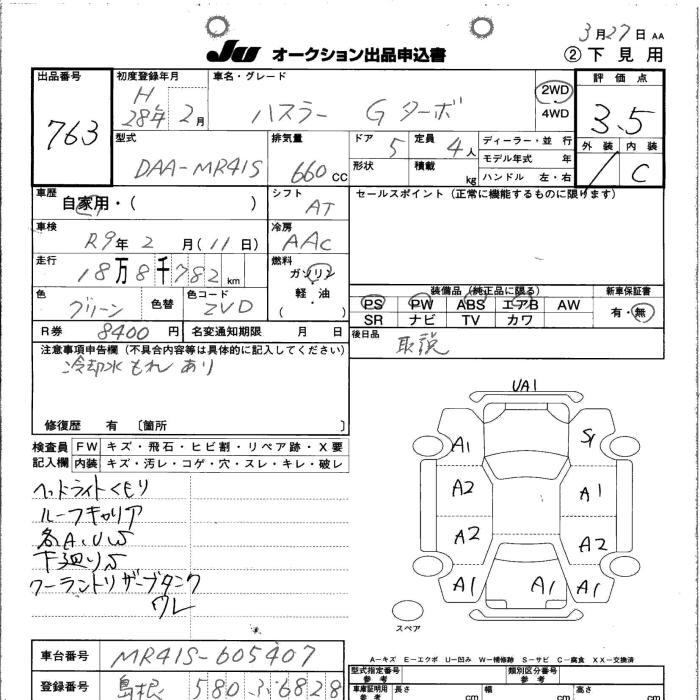 3月27日 AA
JU オークション出品申込書 ② 下見用
出品番号 763
初度登録年月 H 28年 2月
車名・グレード ハスラー Gターボ
2WD
4WD
評価点 3.5
外装 内装 C
型式 DAA-MR41S
排気量 660 CC
ドア 5
定員 4人
形状 積載 kg
ディーラー・並行
モデル年式 年
ハンドル 左・右
車歴 自家用・( )
シフト AT
セールスポイント（正常に機能するものに限ります）
車検 R9年 2月(11日)
冷房 AAC
走行 18万8千782 km
燃料 ガソリン
軽・油
( )
色 グリーン 色替 色コード ZVD
装備品（純正品に限る） 新車保証書
PS PW ABS エアB AW 有・無
SR ナビ TV カワ
R券 8400 円 名変通知期限 月 日
後日品 取説
注意事項申告欄（不具合内容等は具体的に記入してください）
冷却水もれあり
修復歴 有 〔箇所 〕
検査員記入欄
FW キズ・飛石・ヒビ割・リペア跡・X要
内装 キズ・汚レ・コゲ・穴・スレ・キレ・破レ
ヘッドライトくもり
ルーフキャリア
各A、U、W
下廻りS
クーラントリザーブタンク
ワレ
UA1
A1 S1
A2 A1
A2 A2
A1 A1 A1
スペア
A－キズ E－エクボ U－凹み W－補修跡 S－サビ C－腐食 XX－交換済
車台番号 MR41S-605407
登録番号 島根 580 ふ 6828
型式指定番号 類別区分番号
参考 参考
車庫証明用 長さ cm 幅 cm 高さ cm
参考